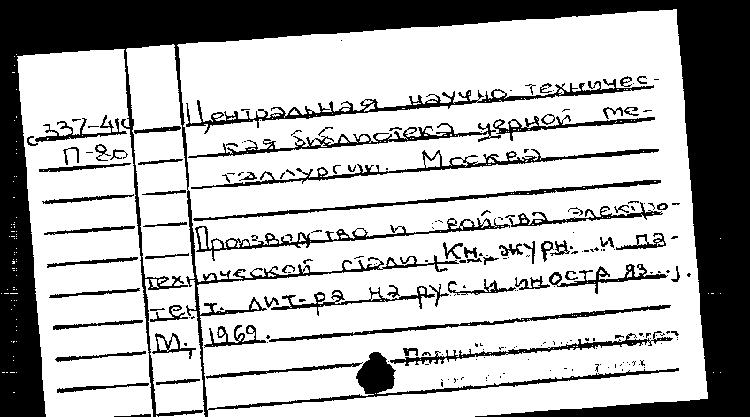 с 337-410
П-80
Центральная научно-техничес-
кая библиотека черной ме-
таллургии. Москва
Производство и свойства электро-
технической стали. [Кн., журн. и па-
тент. лит-ра на рус. и иностр яз...].
М., 1969.
Полный